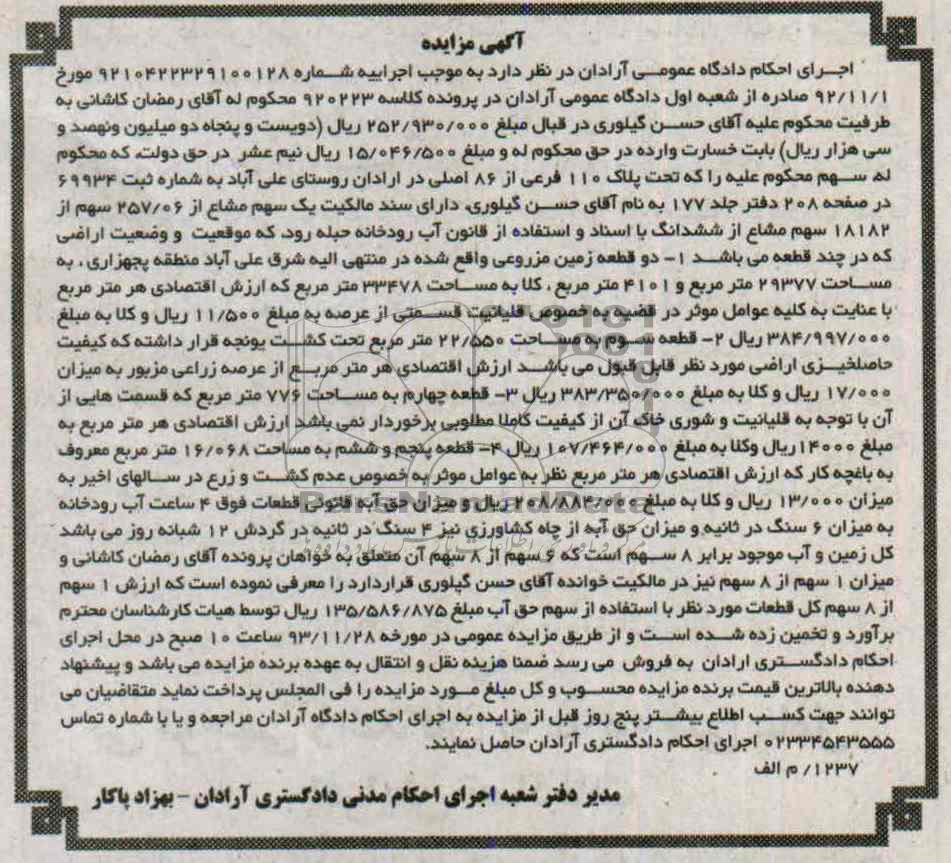 آگهی مزایده
اجرای احکام دادگاه عمومی آرادان در نظر دارد به موجب اجراییه شماره ۹۲۱۰۴۲۲۳۲۹۱۰۰۱۲۸ مورخ
۹۲/۱۱/۱ صادره از شعبه اول دادگاه عمومی آرادان در پرونده کلاسه ۹۲۰۲۲۳ محکوم له آقای رمضان کاشانی به
طرفیت محکوم علیه آقای حسن گیلوری در قبال مبلغ ۲۵۲/۹۳۰/۰۰۰ ریال (دویست و پنجاه دو میلیون ونهصد و
سی هزار ریال) بابت خسارت وارده در حق محکوم له و مبلغ ۱۵/۰۴۶/۵۰۰ ریال نیم عشر در حق دولت، که محکوم
له، سهم محکوم علیه را که تحت پلاک ۱۱۰ فرعی از ۸۶ اصلی در ارادان روستای علی آباد به شماره ثبت ۶۹۹۳۴
در صفحه ۲۰۸ دفتر جلد ۱۷۷ به نام آقای حسن گیلوری، دارای سند مالکیت یک سهم مشاع از ۲۵۷/۰۶ سهم از
۱۸۱۸۲ سهم مشاع از ششدانگ با اسناد و استفاده از قانون آب رودخانه حبله رود، که موقعیت و وضعیت اراضی
که در چند قطعه می باشد ۱- دو قطعه زمین مزروعی واقع شده در منتهی الیه شرق علی آباد منطقه پجهزاری، به
مساحت ۲۹۳۷۷ متر مربع و ۴۱۰۱ متر مربع، کلا به مساحت ۳۳۴۷۸ متر مربع که ارزش اقتصادی هر متر مربع
با عنایت به کلیه عوامل موثر در قضیه به خصوص قلیائیت قسمتی از عرصه به مبلغ ۱۱/۵۰۰ ریال و کلا به مبلغ
۳۸۴/۹۹۷/۰۰۰ ریال ۲- قطعه سوم به مساحت ۲۲/۵۵۰ متر مربع تحت کشت یونجه قرار داشته که کیفیت
حاصلخیزی اراضی مورد نظر قابل قبول می باشد ارزش اقتصادی هر متر مربع از عرصه زراعی مزبور به میزان
۱۷/۰۰۰ ریال و کلا به مبلغ ۳۸۳/۳۵۰/۰۰۰ ریال ۳- قطعه چهارم به مساحت ۷۷۶ متر مربع که قسمت هایی از
آن با توجه به قلیائیت و شوری خاک آن از کیفیت کاملا مطلوبی برخوردار نمی باشد ارزش اقتصادی هر متر مربع به
مبلغ ۱۴۰۰۰ ریال وکلا به مبلغ ۱۰۷/۴۶۴/۰۰۰ ریال ۴- قطعه پنجم و ششم به مساحت ۱۶/۰۶۸ متر مربع معروف
به باغچه کار که ارزش اقتصادی هر متر مربع نظر به عوامل موثر به خصوص عدم کشت و زرع در سالهای اخیر به
میزان ۱۳/۰۰۰ ریال و کلا به مبلغ ۲۰۸/۸۸۴/۰۰۰ ریال و میزان حق آبه قانونی قطعات فوق ۴ ساعت آب رودخانه
به میزان ۶ سنگ در ثانیه و میزان حق آبه از چاه کشاورزی نیز ۴ سنگ در ثانیه در گردش ۱۲ شبانه روز می باشد
کل زمین و آب موجود برابر ۸ سهم است که ۶ سهم از ۸ سهم آن متعلق به خواهان پرونده آقای رمضان کاشانی و
میزان ۱ سهم از ۸ سهم نیز در مالکیت خوانده آقای حسن گیلوری قراردارد را معرفی نموده است که ارزش ۱ سهم
از ۸ سهم کل قطعات مورد نظر با استفاده از سهم حق آب مبلغ ۱۳۵/۵۸۶/۸۷۵ ریال توسط هیات کارشناسان محترم
برآورد و تخمین زده شده است و از طریق مزایده عمومی در مورخه ۹۳/۱۱/۲۸ ساعت ۱۰ صبح در محل اجرای
احکام دادگستری ارادان به فروش می رسد ضمنا هزینه نقل و انتقال به عهده برنده مزایده می باشد و پیشنهاد
دهنده بالاترین قیمت برنده مزایده محسوب و کل مبلغ مورد مزایده را فی المجلس پرداخت نماید متقاضیان می
توانند جهت کسب اطلاع بیشتر پنج روز قبل از مزایده به اجرای احکام دادگاه آرادان مراجعه و یا با شماره تماس
۰۲۳۳۴۵۴۳۵۵۵ اجرای احکام دادگستری آرادان حاصل نمایند.
۱۲۳۷/ م الف
مدیر دفتر شعبه اجرای احکام مدنی دادگستری آرادان - بهزاد پاکار